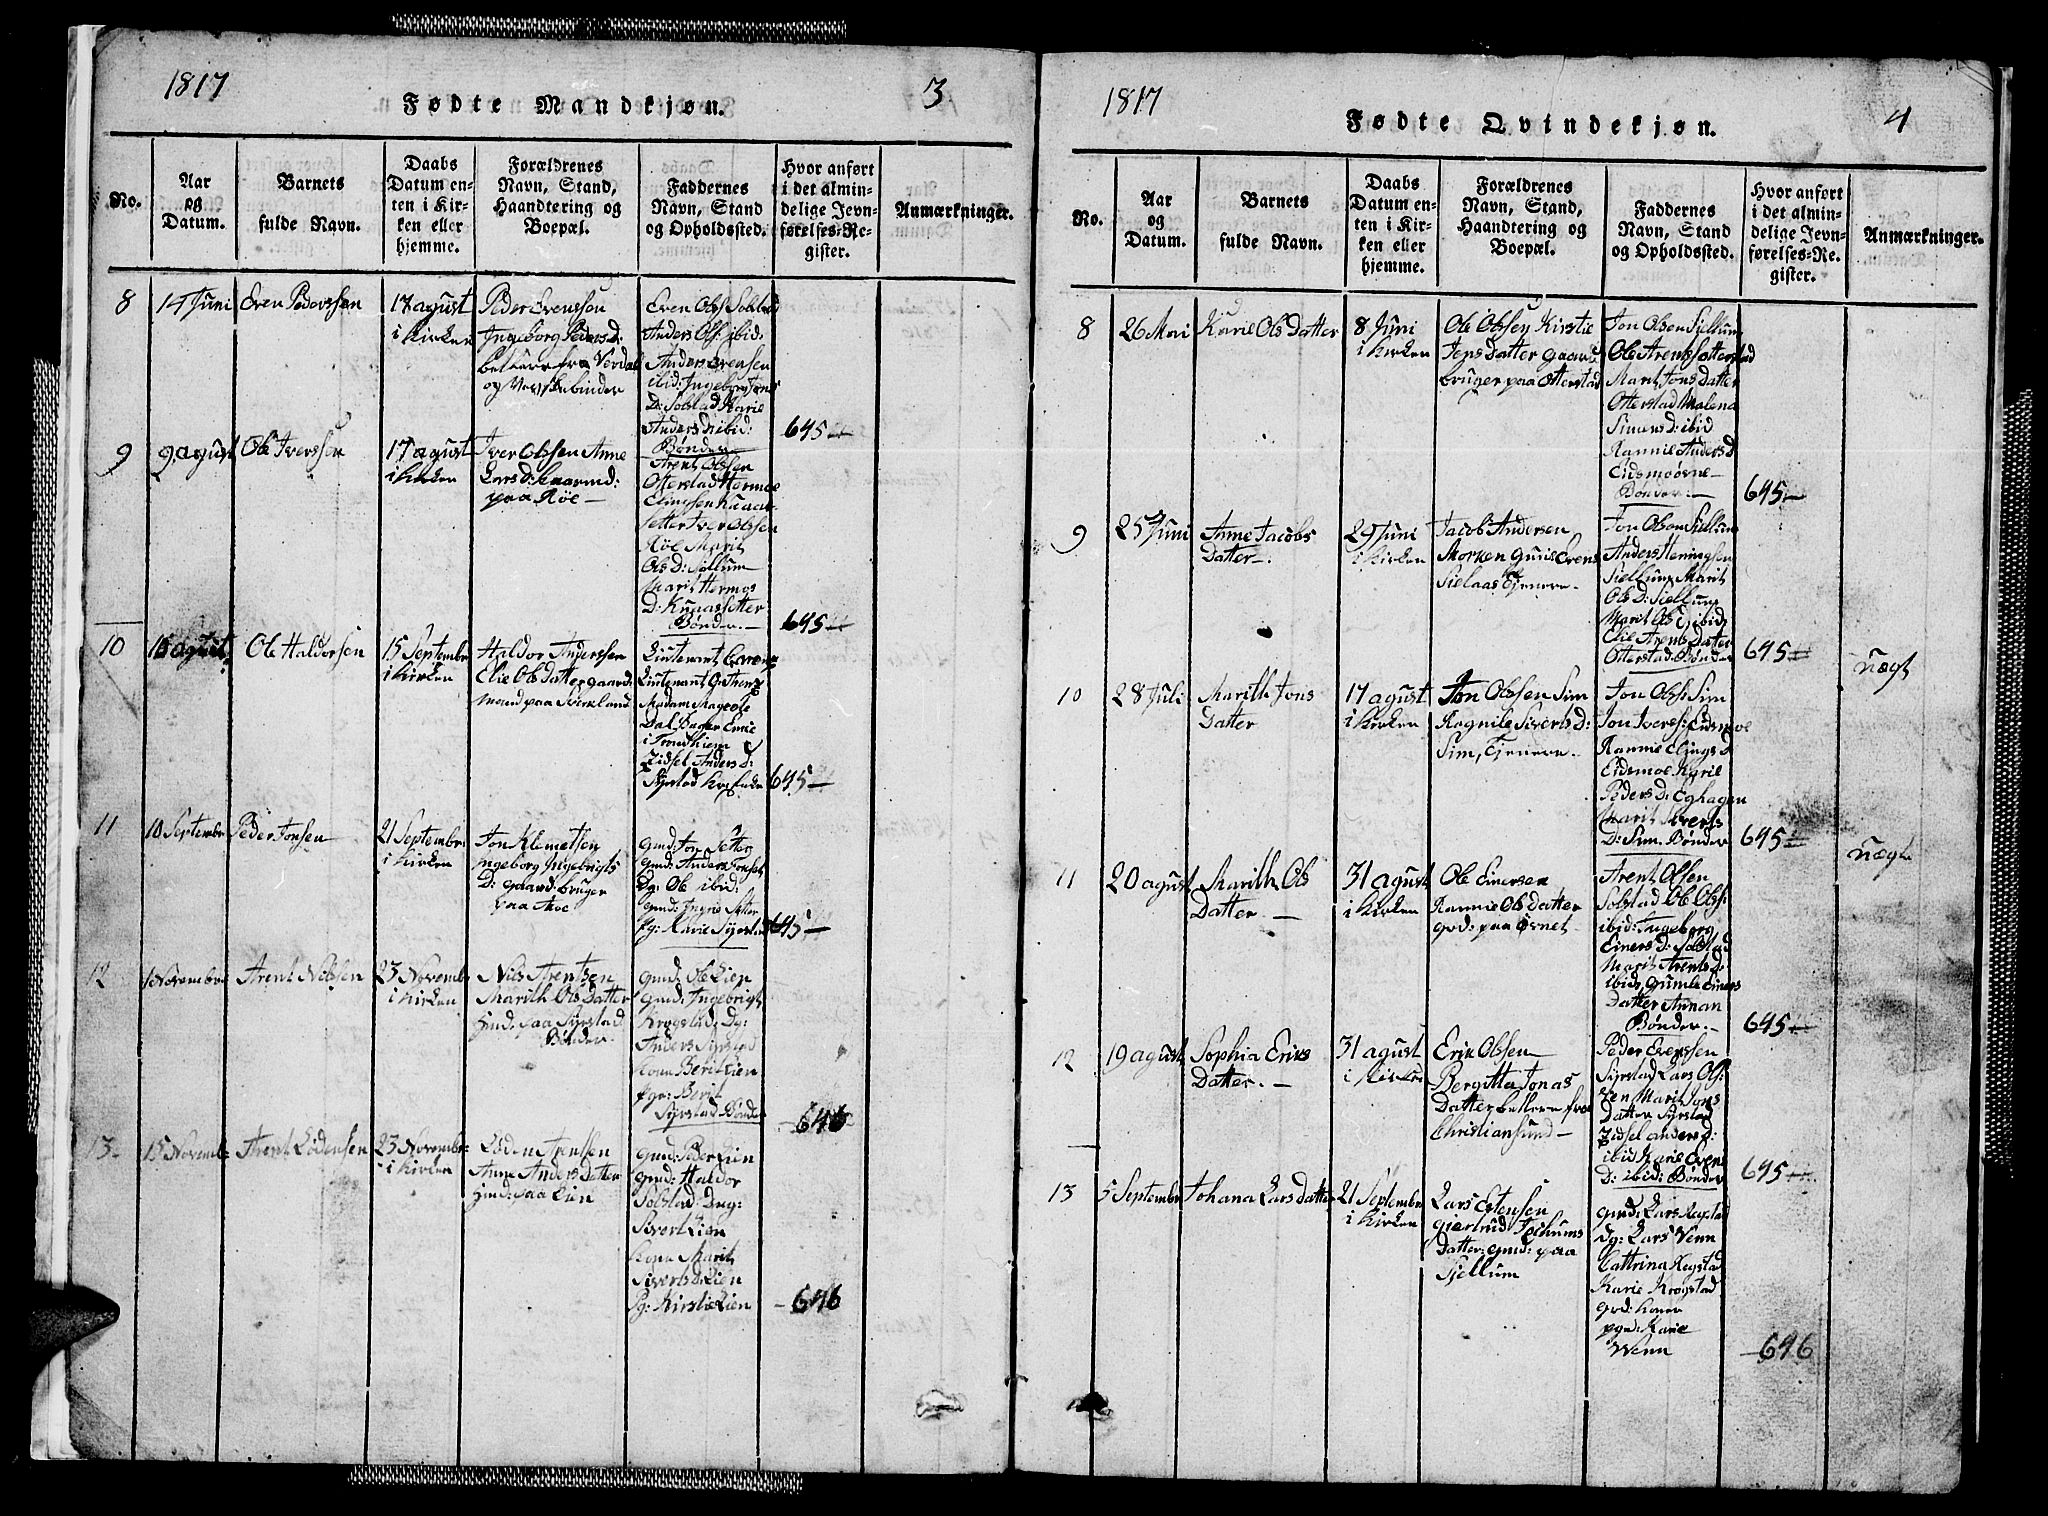 1817
Fødte Mandkjøn.
3
No.
Aar
og
Datum.
Barnets
fulde Navn.
Daabs
Datum en-
ten i Kir-
ken eller
hjemme.
Forældrenes
Navn, Stand,
Haandtering og
Boepæl.
Faddernes
Navn, Stand
og Opholdssted.
Hvor anført
i det almin-
delige Jevn-
førelses-Re-
gister.
Anmærkninger.
8
14 Juni
Even Pedersen
17 agust
i Kirken
Peder Evensen
Ingeborg Peders D:
betlere fra Verdal
og
Even Ols: Solstad
Anders Ols: ibid:
Anders Evensen
ibid: Ingeborg Jons
D: Solstad Karie
Anders D: ibid:
Bønder
645
9
9 agust
Ole Iverssen
17 agust
i Kirken
Iver Olssen Anne
Lars D: Gaarmd:
paa Røe
Arent Olssen
Otterstad Hermoe
Elingsen Knaas-
setter Iver Olssen
Røe Marit
Ols D: Siellum
Marit Hermos
D: Knaassetter
Bønder.
645
10
16 agust
Ole Haldorsen
15 Septembr
i Kirken
Haldor Anderssen
Elie Ols Datter gaard:
mand paa Svirkland
Lieutenant
Lieutenant
Madam
Dal Enke
i Trondhiem
Zidsel Anders D:
Syrstad
645
11
10 Septembr
Peder Jonsen
21 Septembr:
i Kirken
Jon Klemetsen
Ingeborg Ingebrigts
D: gaard: bruger
paa Moe
gmd: Jon Setter
gmd: Anders
Dg: Ole ibid:
gmd: Ingrie Setter
Pg: Karie Syrstad
645
12
1 Novembr
Arent Nilssen
23 Novembr
i Kirken
Nils Arentsen
Marith Ols Datter
Hmd: paa Syrstad
Bønder.
gmd: Ole Lien
gmd: Ingebrigt
Krogstad: Dg:
Anders Syrstad
Kone Berit Lien
Pge: Berit
Syrstad Bønder
646
13
15 Novemb:
Arent Lødensen
23 Novembr
i Kirken
Løden Arentsen
Anne Anders Datter
Hmd: paa Lien
gmd: Peder Lien
gmd: Haldor
Solstad: Dug:
Sivert Lien
Kone Marit
Siverts D: Lien
Pg: Kirstie Lien
646
1817
Fødte Qvindekjøn.
4
No.
Aar
og
Datum.
Barnets
fulde Navn.
Daabs
Datum en-
ten i Kir-
ken eller
hjemme.
Forældrenes
Navn, Stand,
Haandtering og
Boepæl.
Faddernes
Navn, Stand
og Opholdssted.
Hvor anført
i det almin-
delige Jevn-
førelses-Re-
gister.
Anmærkninger.
8
26 Mai
Karie Ols Datter
8 Juni
i Kirken
Ole Olssen Kirstie
Jens Datter Gaard
bruger paa Otterstad
Jon Olsen Siellum
Ole Arents: Otterstad
Marit Jons Datter
Otterstad Malena
Simens D: ibid
Rannie Anders D
Eidsmoørne
Bønder.
645
9
25 Juni
Anne Jacobs
Datter.
29 Juni
i Kirken
Jacob Andersen
Morken Gurie Evens
Sielaas Tjenere.
Jon Olsen Siellum
Anders Heningsen
Siellung Marit
Ols D: Siellung
Marit Ols D: ibid:
Elie Arents Datter
Otterstad: Bønder
645
nægt
10
28 Juli
Marith Jons
Datter
17 agust
i Kirken
Jon Olssen Sim
Ragnile Siverts D:
Sim, Tjenere.
Jon Ols: Sim
Jon Ivers: Eidsmoe
Rannie Elings D
Eidsmoe Karie
Peders D: Eghagen
Marit Siverts
D: Sim. Bønder
645
nægt
11
20 agust
Marith Ols
Datter.
31 agust
i Kirken
Ole Einersen
Rannie Ols Datter
grd: paa Øvnet
Arent Olsen
Solstad Ole Ols:
ibid: Ingeborg
Einers D: Solstad
Marit Arents D:
ibid: Gunile Einers
Datter Annan
Bønder.
645
12
19 agust
Sophia Eriks
Datter.
31 agust
i Kirke
Erik Olssen
Bergitta Jonas
Datter betlere fra
Christiansund
Peder Evenssen
Syrstad Lars Ols:
Zen Marit Jons
Datter Syrstad
Zidsel anders D:
ibid Karie Evens
D: ibid: Bønder
645
13
5 Septembr
Johana Lars Datter
21 Septembr
i Kirken
Lars Estensen
giertrud Jochums
Datter: gmd: paa
Sjellum
gmd: Lars Regstad
Dg: Lars Venn
Cattrina Regstad
Karie Krogstad
grd: koner
pgmd: Karie
Wenn
646